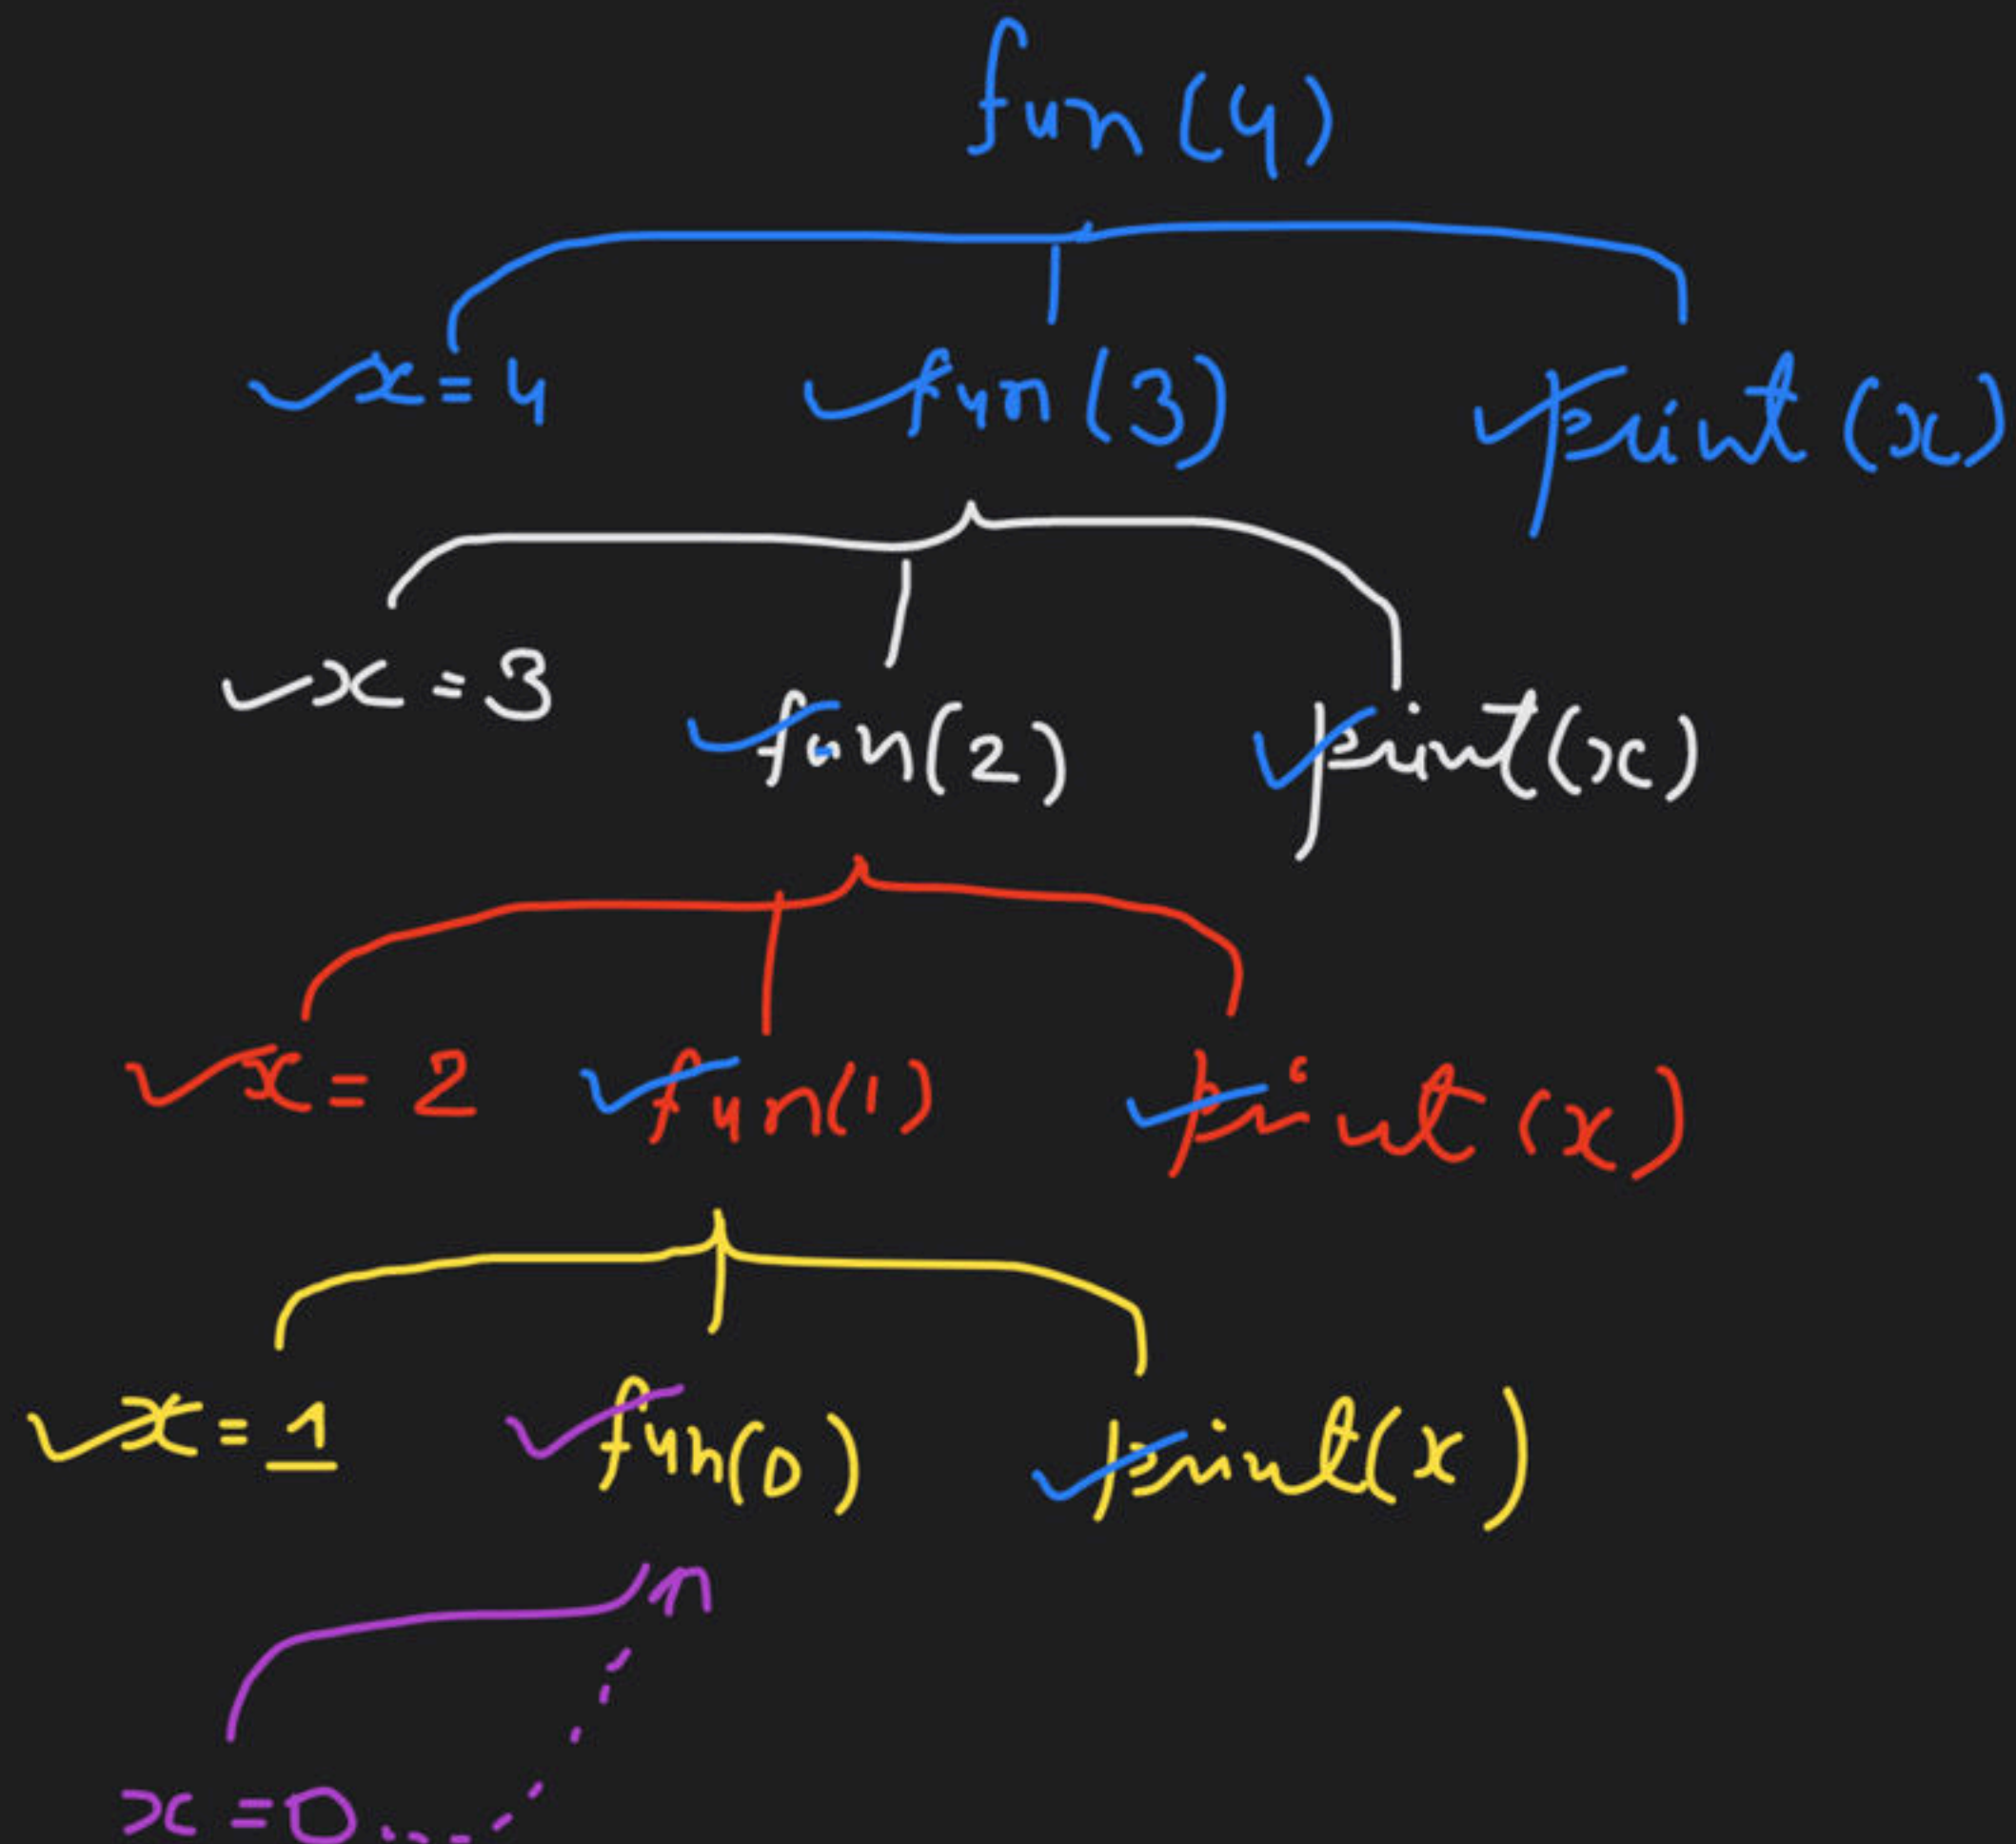 fun(4)
x=4 fun(3) print(x)
x=3 fun(2) print(x)
x=2 fun(1) print(x)
x=1 fun(0) print(x)
x=0